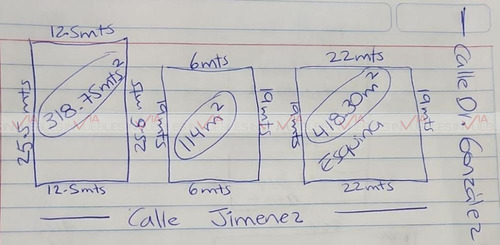 12.5mts
25.5 mts
318.75mts²
25.5 mts
12.5mts
6mts
19mts
114m²
19mts
6mts
22mts
19mts
418.30m²
Esquina
19mts
22mts
Calle Jimenez
Calle Dr. González